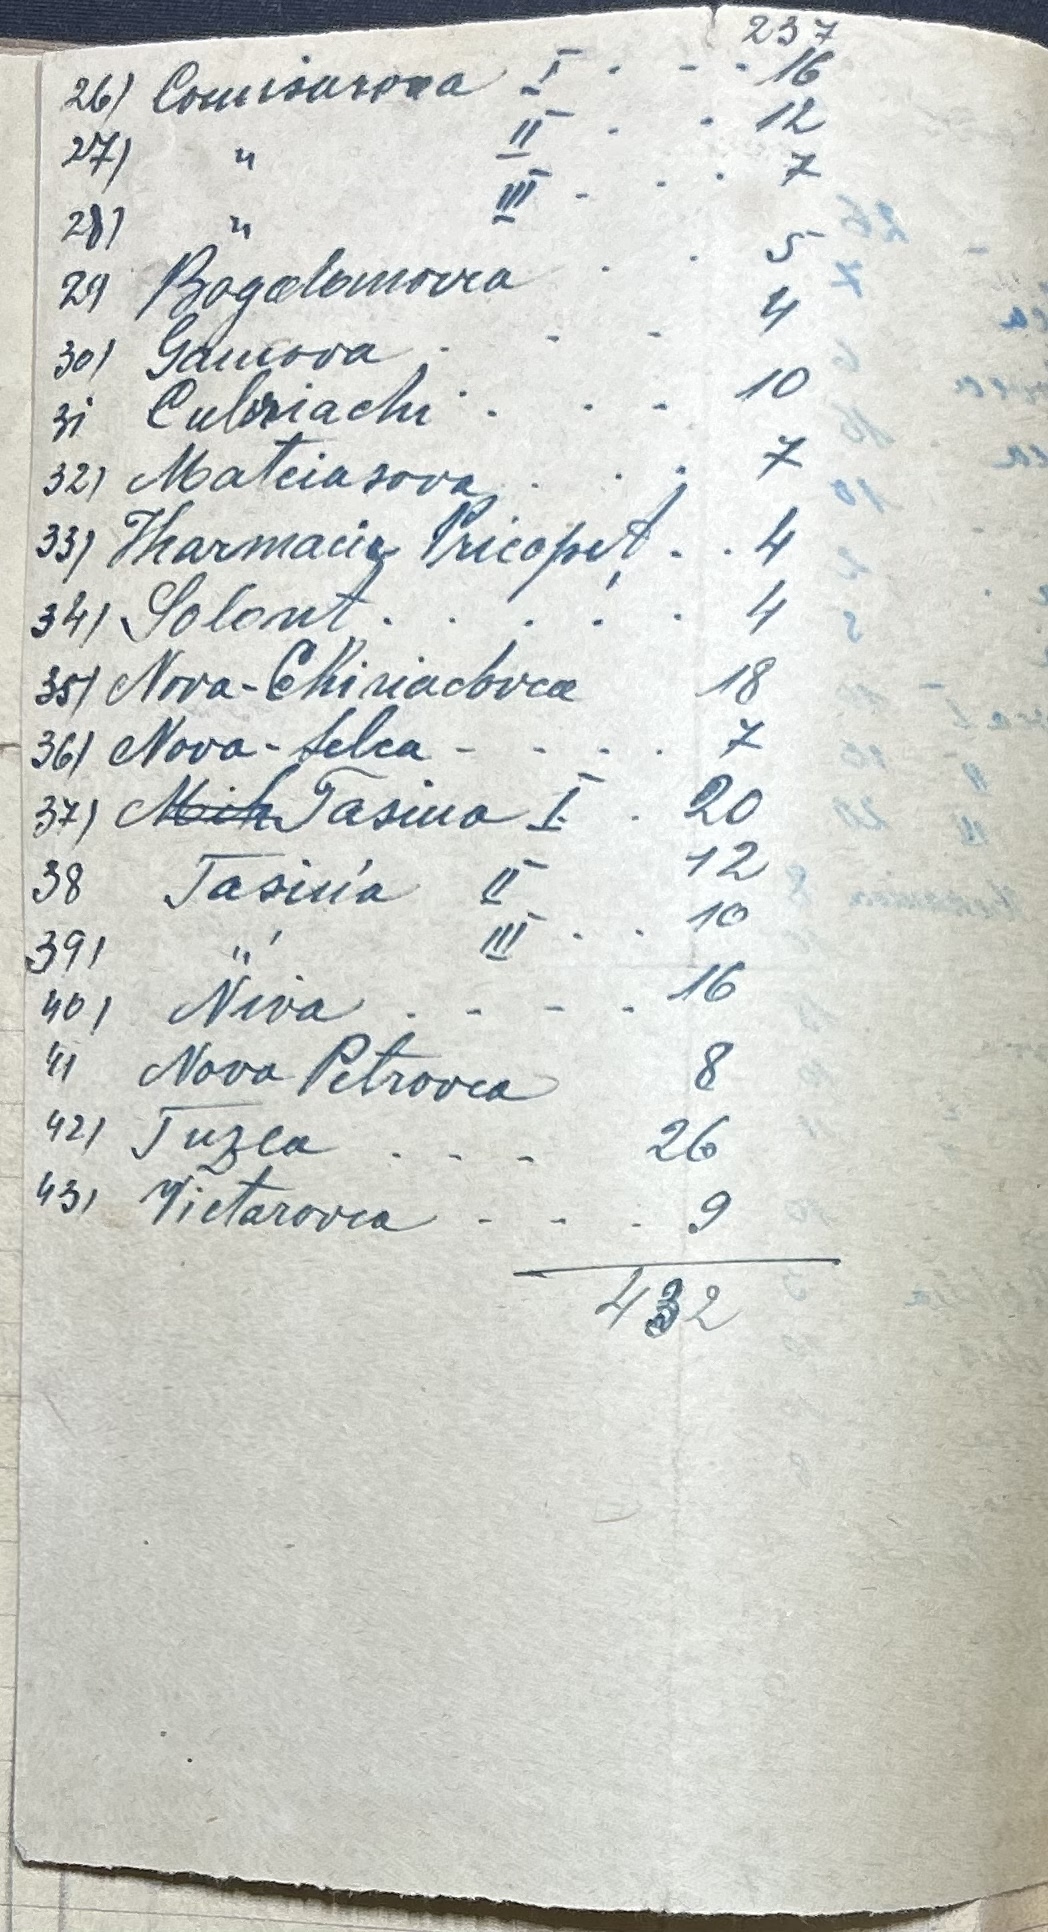 237
26) Comisarovca I . - - . 16
27) " II . . 12
28) " III - . . 7
29 Bogdanovca . . 5
30) Gamova . - - 4
31 Culiriachi . . . - 10
32) Mateiasova . . . 7
33) Pharmacia Pricopeț . . 4
34) Solont . . . . . 4
35) Nova-Chiriachovca 18
36) Nova-selca - - . . . 7
37) Mih Tasina I . 20
38 Tasina II 12
39) " III . . 10
40) Niva . - - . 16
41 Nova Petrovca 8
42) Tuzla . - - - 26
43) Victarovca - - . 9
432